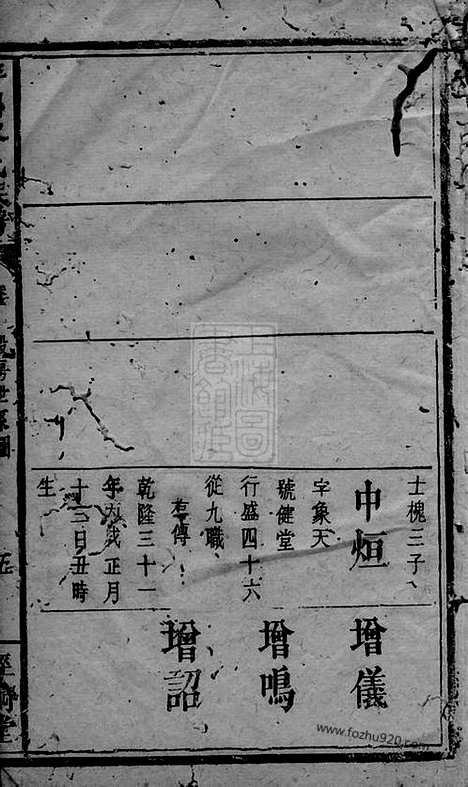 士槐三子
中烜
字象天
號健堂
行盛四十六
從九職
有傳
乾隆三十一
年丙戌正月
十三日丑時
生
增儀
增鳴
增詔
世系圖
五
經術堂
上海圖書館藏
www.fozhu920.com